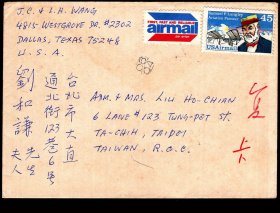 J.C. & L.H. WANG
4815 WESTGROVE DR. #2302
DALLAS, TEXAS 75248
U.S.A.
FIRST, FAST AND RELIABLE
airmail
Samuel P. Langley
Aviation Pioneer
45
USAirmail
ADM. & MRS. LIU HO-CHIAN
6 LANE #123 TUNG-PEI ST.
TA-CHIH, TAIPEI
TAIWAN, R.O.C.
台北市大直
通北街123巷6号
劉和謙先生
夫人
卡